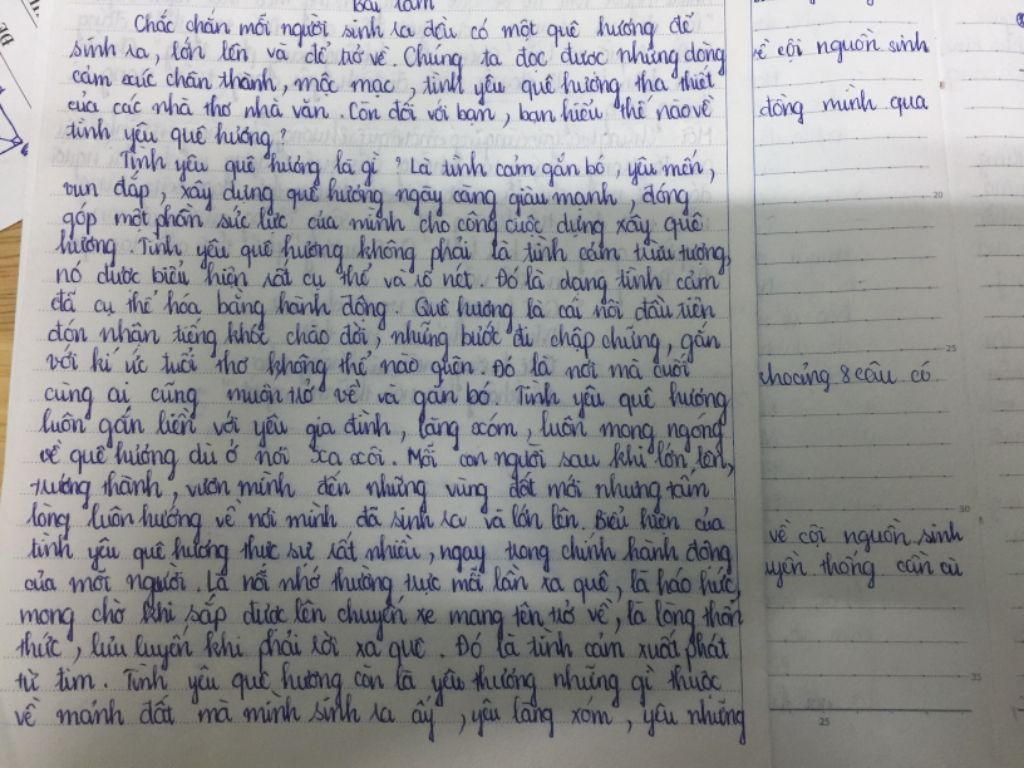 Bài làm
Chắc chắn mỗi người sinh ra đều có một quê hương để
sinh ra, lớn lên và để trở về. Chúng ta đọc được những dòng
cảm xúc chân thành, mộc mạc, tình yêu quê hương tha thiết
của các nhà thơ nhà văn. Còn đối với bạn, bạn hiểu thế nào về
tình yêu quê hương?
Tình yêu quê hương là gì? Là tình cảm gắn bó, yêu mến,
vun đắp, xây dựng quê hương ngày càng giàu mạnh, đóng
góp một phần sức lực của mình cho công cuộc dựng xây quê
hương. Tình yêu quê hương không phải là tình cảm trừu tượng,
nó được biểu hiện rất cụ thể và rõ nét. Đó là dạng tình cảm
đã cụ thể hóa bằng hành động. Quê hương là cái nôi đầu tiên
đón nhận tiếng khóc chào đời, những bước đi chập chững, gắn
với kí ức tuổi thơ không thể nào quên. Đó là nơi mà cuối
cùng ai cũng muốn trở về và gắn bó. Tình yêu quê hương
luôn gắn liền với yêu gia đình, làng xóm, luôn mong ngóng
về quê hương dù ở nơi xa xôi. Mỗi con người sau khi lớn lên,
trưởng thành, vươn mình đến những vùng đất mới nhưng tấm
lòng luôn hướng về nơi mình đã sinh ra và lớn lên. Biểu hiện của
tình yêu quê hương thực sự rất nhiều, ngay trong chính hành động
của mỗi người. Là nỗi nhớ thường trực mỗi lần xa quê, là háo hức,
mong chờ khi sắp được lên chuyến xe mang tên trở về, là lòng thổn
thức, lưu luyến khi phải rời xa quê. Đó là tình cảm xuất phát
từ tim. Tình yêu quê hương còn là yêu thương những gì thuộc
về mảnh đất mà mình sinh ra ấy, yêu làng xóm, yêu những
về cội nguồn sinh
đồng mình qua
khoảng 8 câu có
về cội nguồn sinh
uyền thống cần cù
20
25
30
35
25